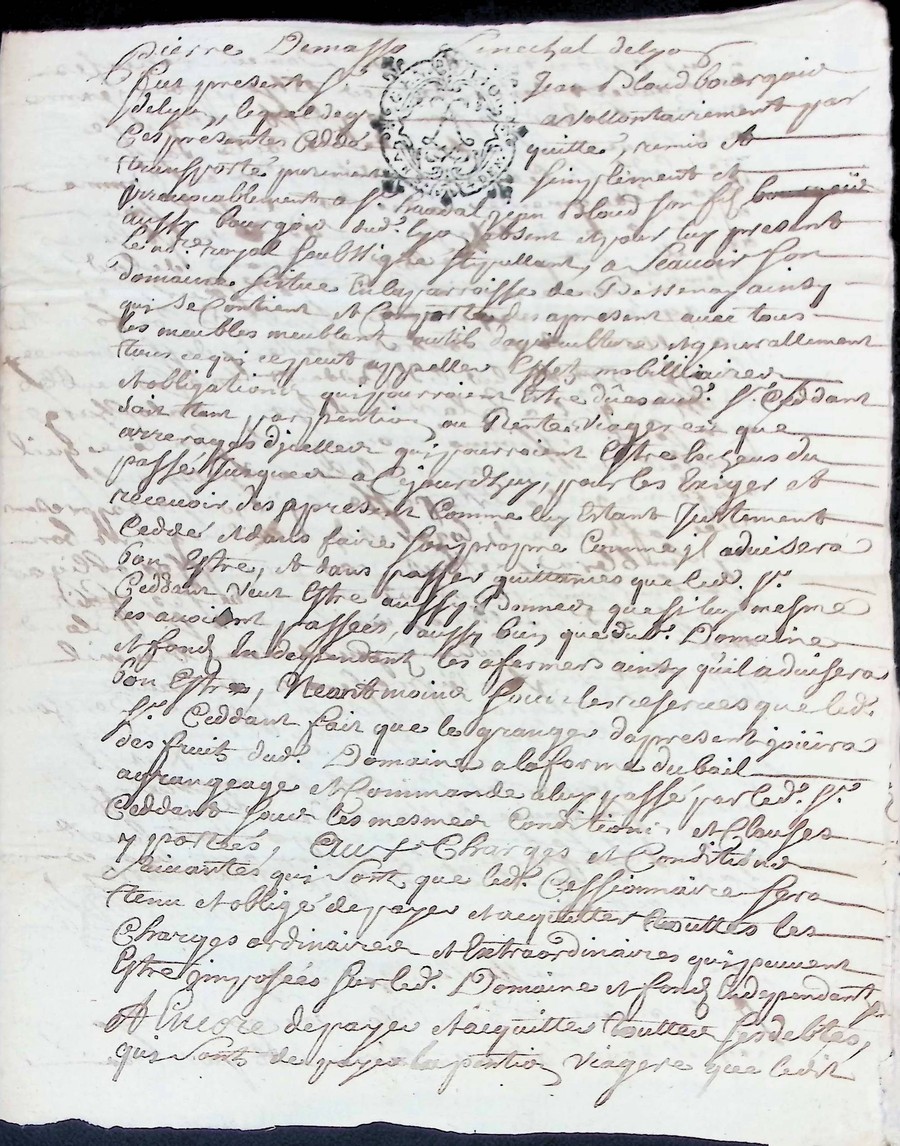 Pierre Demasso Senechal delyo
Fut present Sr. Jean Bloud bourgois
delyo, lequel de gre a vollontairement par
Ces presentes Ceddé quitté, remis et
transporté purement Simplement et
irrevocablement a Sr. Jean Bloud son fils
aussy bourgois dud. lyo absent et pour luy present
le no.re royal soubssigné stipullant, a Scauoir Son
domaine scitué En la parroisse de Bessenay ainsy
qui Se Contient et Comporte des apresent auec tous
les meubles meublant outils dagriculture et generallement
tous ce qui ce peut appeller Effets mobilliaires
et obligations qui pourroient Estre dûes aud. Sr. Ceddant
soit tant par pention ou Rentes Viageres que
arrerages d'jcelles qui pourroient Estre Echeus du
passé jusques a Cejourdhuy, pour les Exiger et
receuoir des apresent Comme luy Estant Justement
Ceddé et dans faire Son propre Comme jl aduisera
bon Estre, et dans passer quittances que led. Sr.
Ceddant Veut Estre aussy Bonnes que si luy mesme
les auoient passées, aussy bien que dud. Domaine
et fonds En dependant les afermer ainsy qu'il aduisera
bon Estre, Neantmoins Sous les reserues que led.
Sr. Ceddant fait que le granger dapresent joüira
des fruits dud. Domaine a la forme du bail
a grangeage et Commande a luy passé par led. Sr.
Ceddant sous les mesmes Conditions et Clauses
y portées, Aux Charges et Conditions
Suiuantes qui Sont que led. Cessionnaire Sera
tenu et obligé de payer et acquitter touttes les
Charges ordinaires et Extraordinaires qui peuuent
Estre imposées Sur led. Domaine et fonds En dependants
Et Encore de payer et acquitter touttes ses debtes,
qui Sont de payer la pention Viagere que ledit